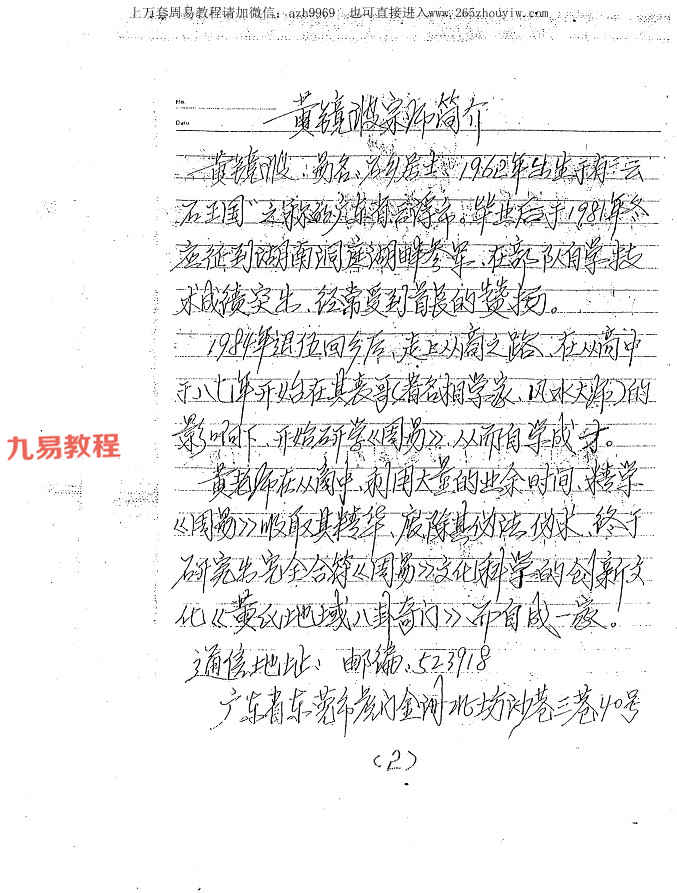 上万套周易教程请加微信：azh9969 也可直接进入www.265zhouyiw.com
No.
Date
黄镜波宗师简介
黄镜波：易名、石乡居士、1962年出生于有"云
石王国"之称的广东省云浮市。毕业后于1981年冬
应征到湖南洞庭湖畔参军、在部队自学技
术成绩突出、经常受到首长的赞扬。
1984年退伍回乡后、走上从商之路、在从商中
于八七年开始在其表哥（著名相学家、风水大师）的
影响下、开始研学《周易》、从而自学成才。
九易教程
黄老师在从商中、利用大量的业余时间、精学
《周易》吸取其精华、废除其伪法伪术、终于
研究出完全合符《周易》文化科学的创新文
化《黄氏地域八卦奇门》、而自成一家。
通信地址：邮编：523918
广东省东莞市虎门金洲北坊沙巷三巷40号
（2）